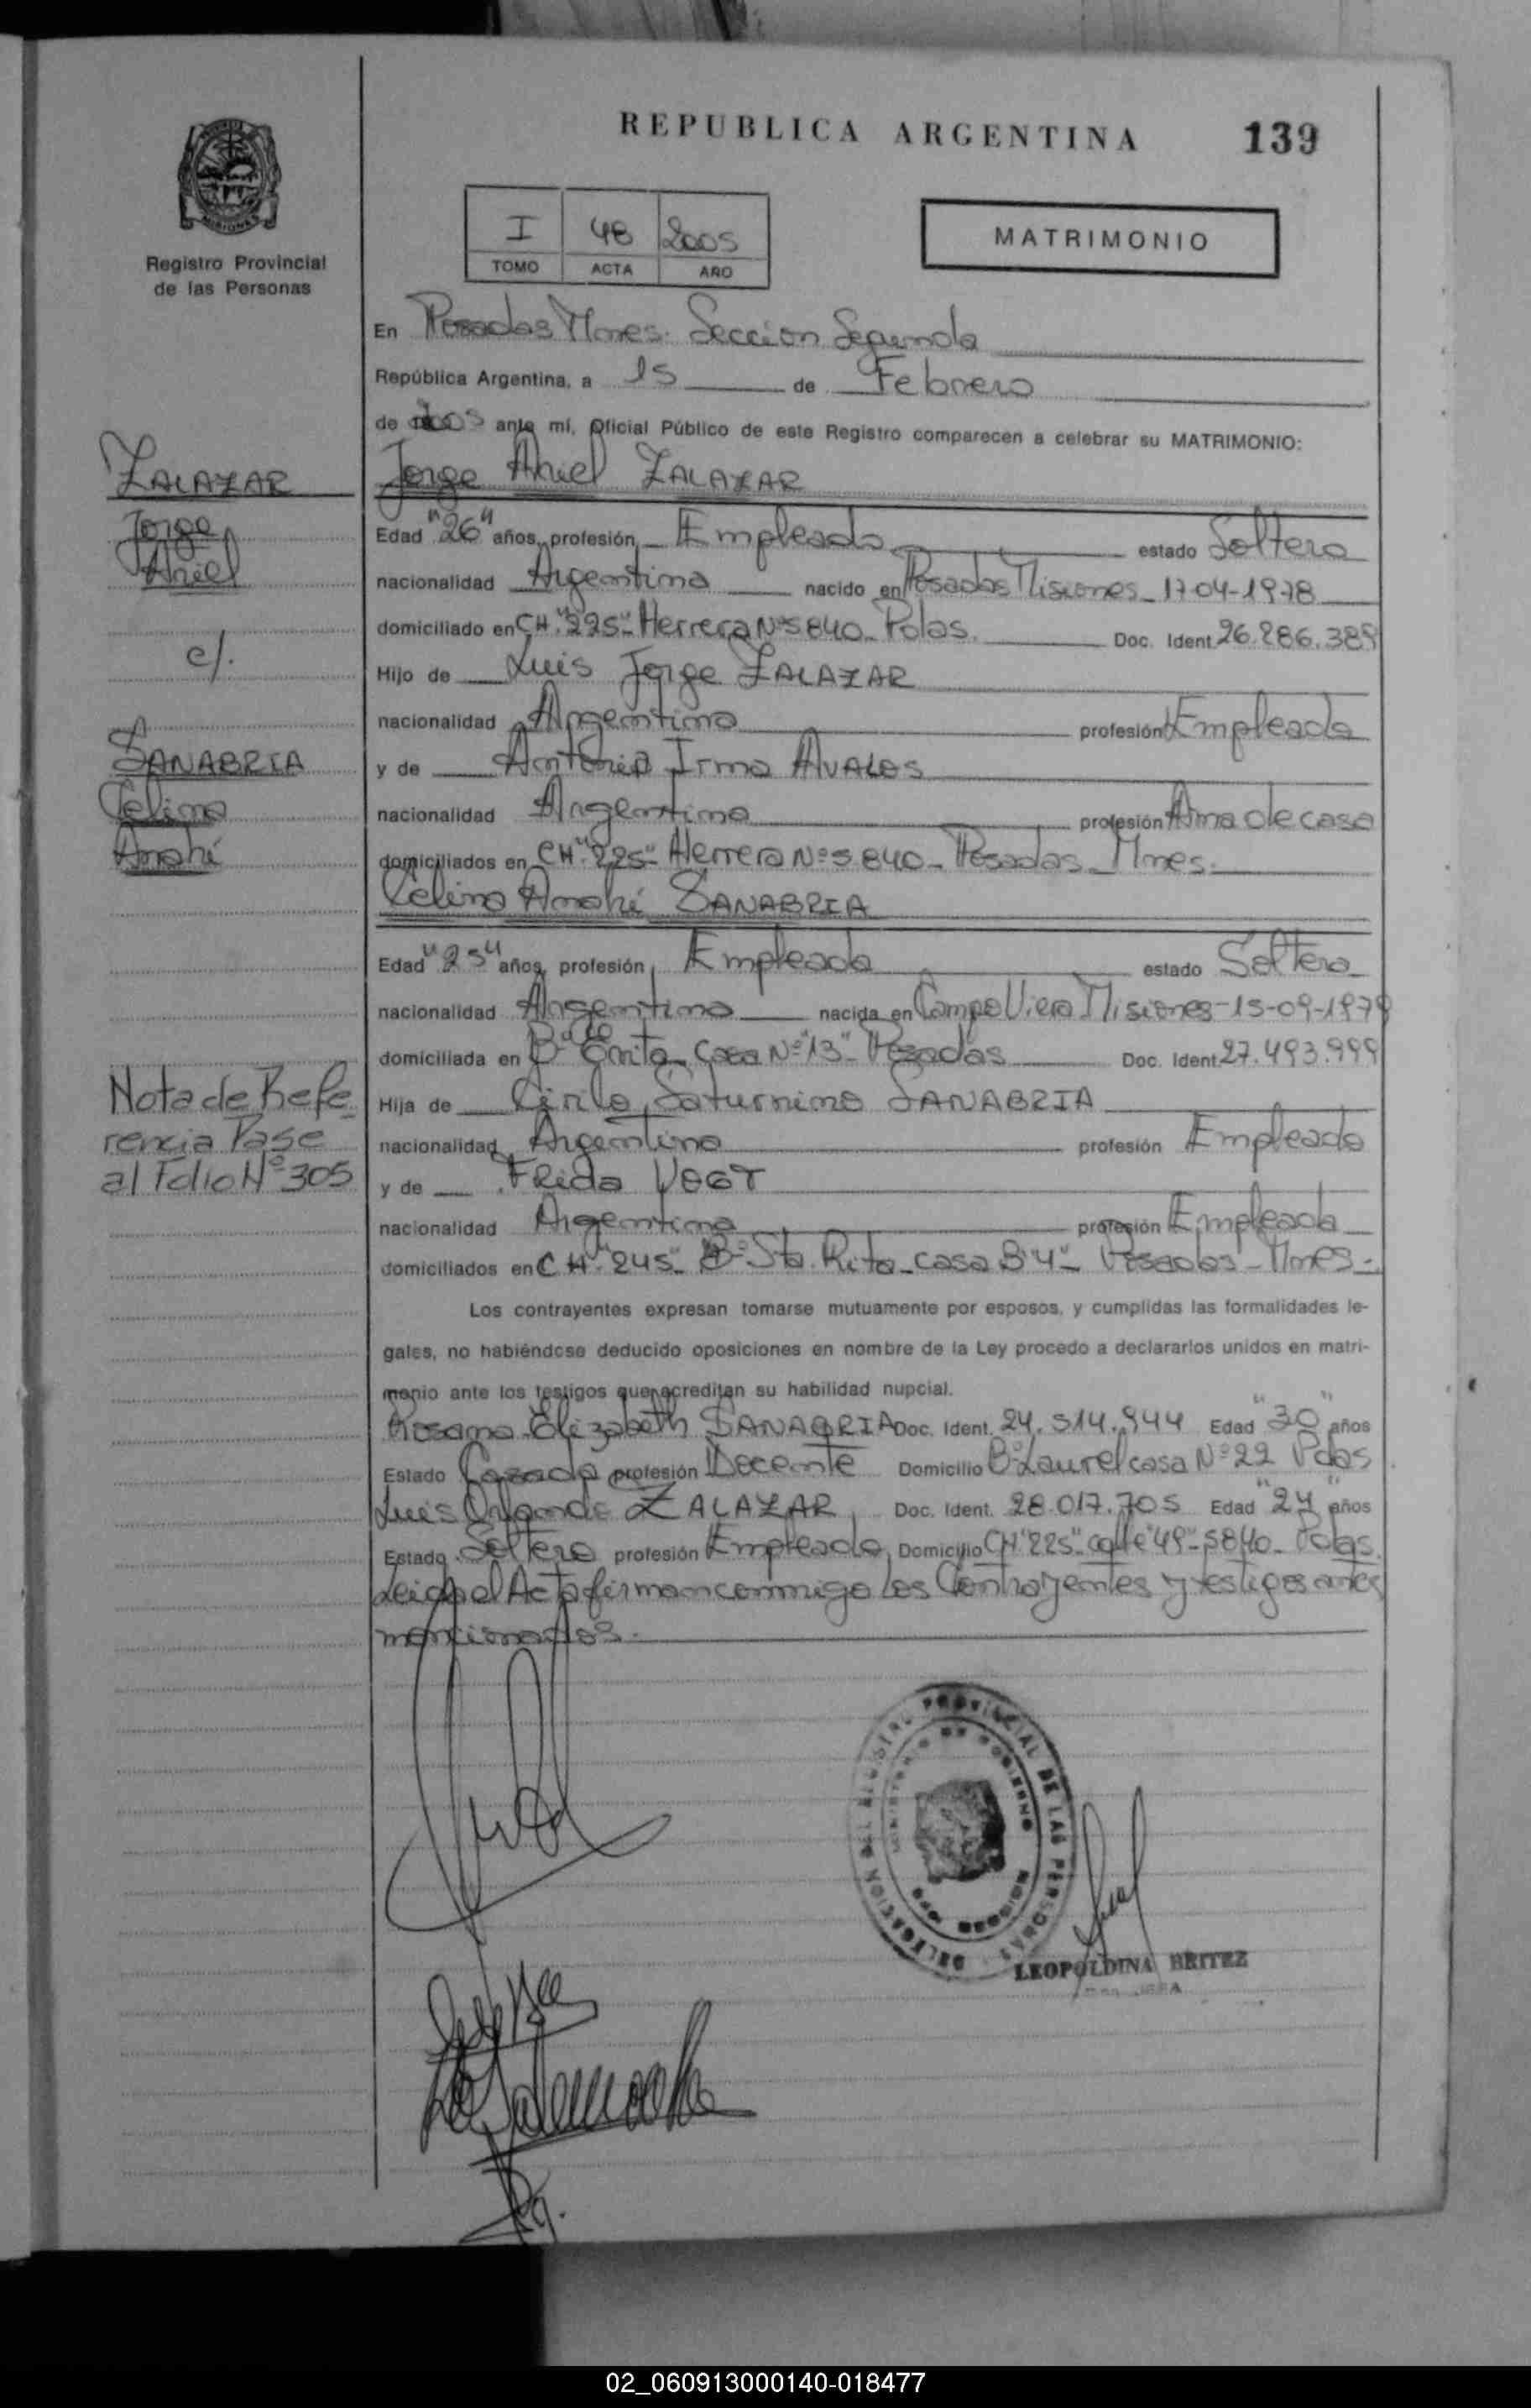 REPUBLICA ARGENTINA
139
MISIONES
Registro Provincial
de las Personas
I 48 2005
TOMO ACTA AÑO
MATRIMONIO
En Posadas Mnes. Sección Segunda
República Argentina, a 15 de Febrero
de 2005 ante mí, Oficial Público de este Registro comparecen a celebrar su MATRIMONIO:
ZALAZAR
Jorge
Ariel
c/.
SANABRIA
Celina
Anahí
Jorge Ariel ZALAZAR
Edad "26" años, profesión Empleado estado Soltero
nacionalidad Argentina nacido en Posadas Misiones - 17-04-1978
domiciliado en CH. "225" - Herrera Nº 5840 - Pdas. Doc. Ident. 26.286.389
Hijo de Luis Jorge ZALAZAR
nacionalidad Argentina profesión Empleado
y de Antonia Irma AVALOS
nacionalidad Argentina profesión Ama de casa
domiciliados en CH "225" - Herrera Nº 5.840 - Posadas - Mnes.
Celina Anahí SANABRIA
Edad "25" años, profesión Empleada estado Soltera
nacionalidad Argentina nacida en Campo Viera Misiones - 15-09-1979
domiciliada en Bº Evita - Casa Nº "13" - Posadas Doc. Ident. 27.493.999
Nota de Refe
rencia Pase
al Folio Nº 305
Hija de Cirilo Saturnino SANABRIA
nacionalidad Argentina profesión Empleado
y de Frida VOGT
nacionalidad Argentina profesión Empleada
domiciliados en CH. "245" - Bº Sta. Rita - casa B "4" - Posadas - Mnes -
Los contrayentes expresan tomarse mutuamente por esposos, y cumplidas las formalidades le-
gales, no habiéndose deducido oposiciones en nombre de la Ley procedo a declararlos unidos en matri-
monio ante los testigos que acreditan su habilidad nupcial.
Rosana Elizabeth SANABRIA Doc. Ident. 24.514.944 Edad "30" años
Estado Casada profesión Docente Domicilio Bº Laurel casa Nº 22 Pdas
Luis Orlando ZALAZAR Doc. Ident. 28.017.705 Edad "24" años
Estado Soltero profesión Empleado, Domicilio CH "225" - calle "49" - 5840 - Pdas.
Leida el Acta firman conmigo los Contrayentes y testigos antes
mencionados.
DELEGACION DEL REGISTRO PROVINCIAL DE LAS PERSONAS
MINISTERIO DE GOBIERNO
LEOPOLDINA BRITEZ
02_060913000140-018477